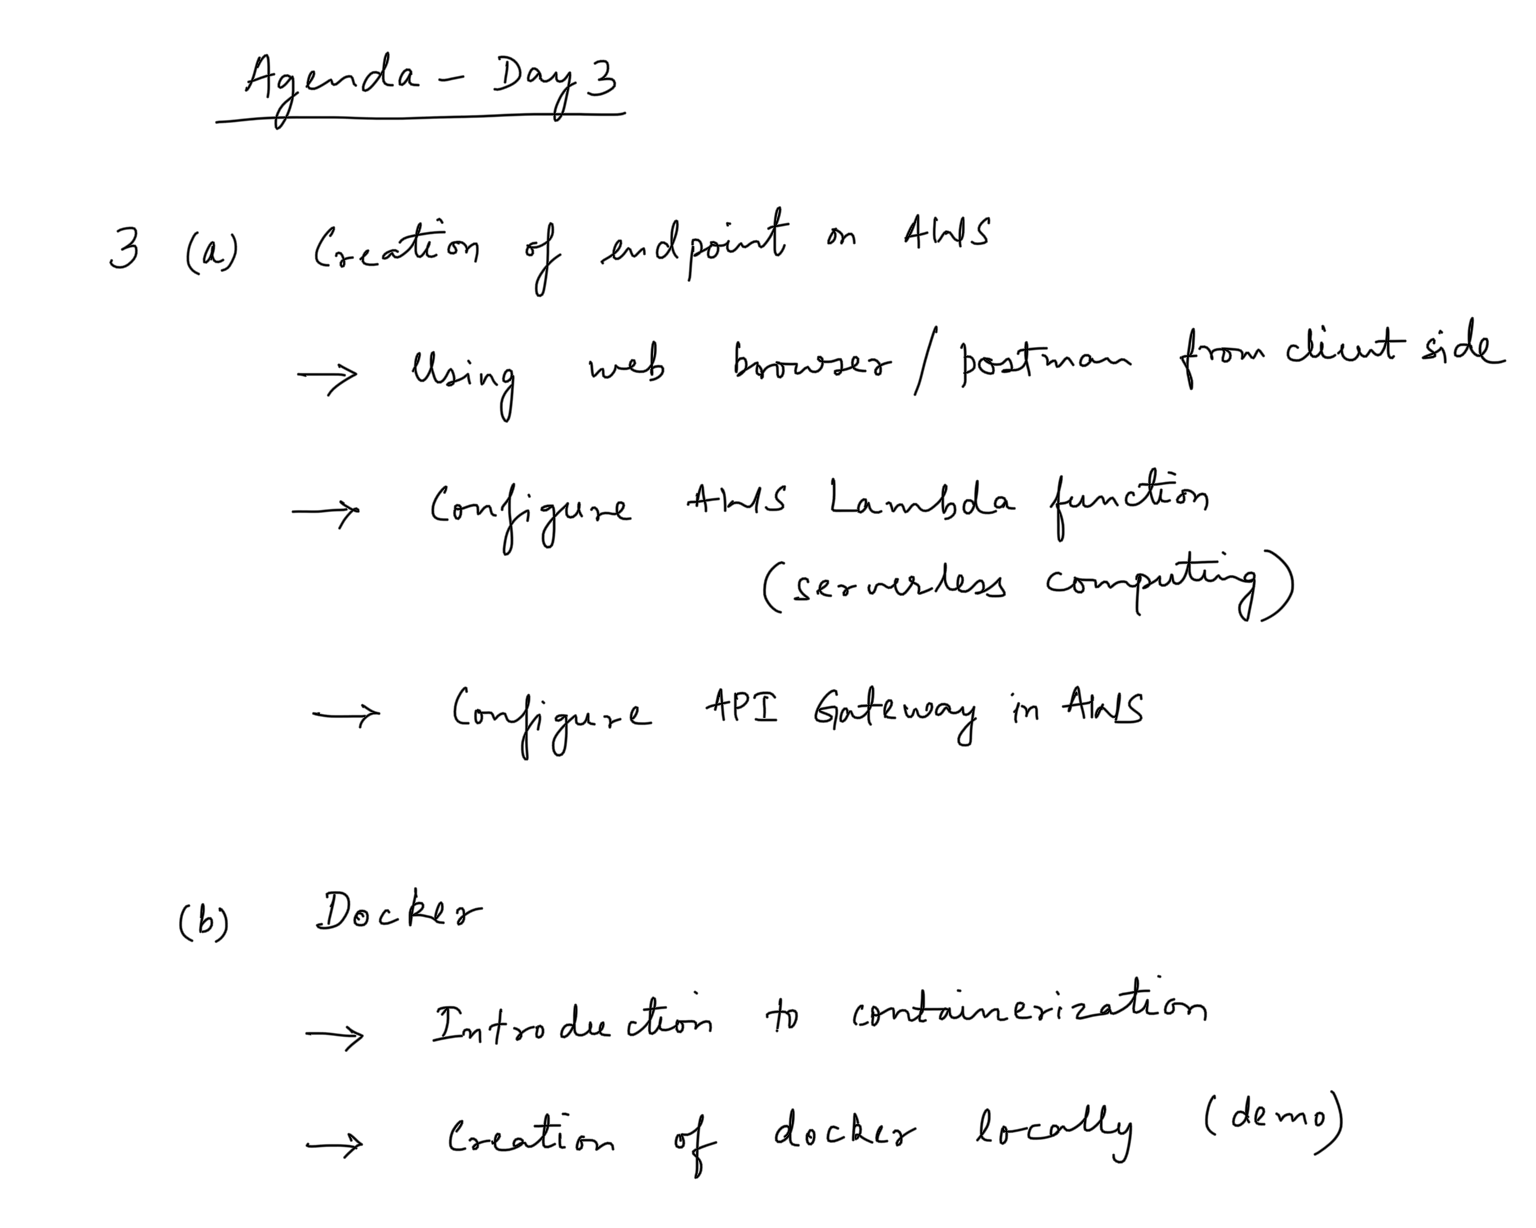 Agenda - Day 3
3 (a) Creation of endpoint on AWS
→ Using web browser / postman from client side
→ Configure AWS Lambda function
(serverless computing)
→ Configure API Gateway in AWS
(b) Docker
→ Introduction to containerization
→ Creation of docker locally (demo)